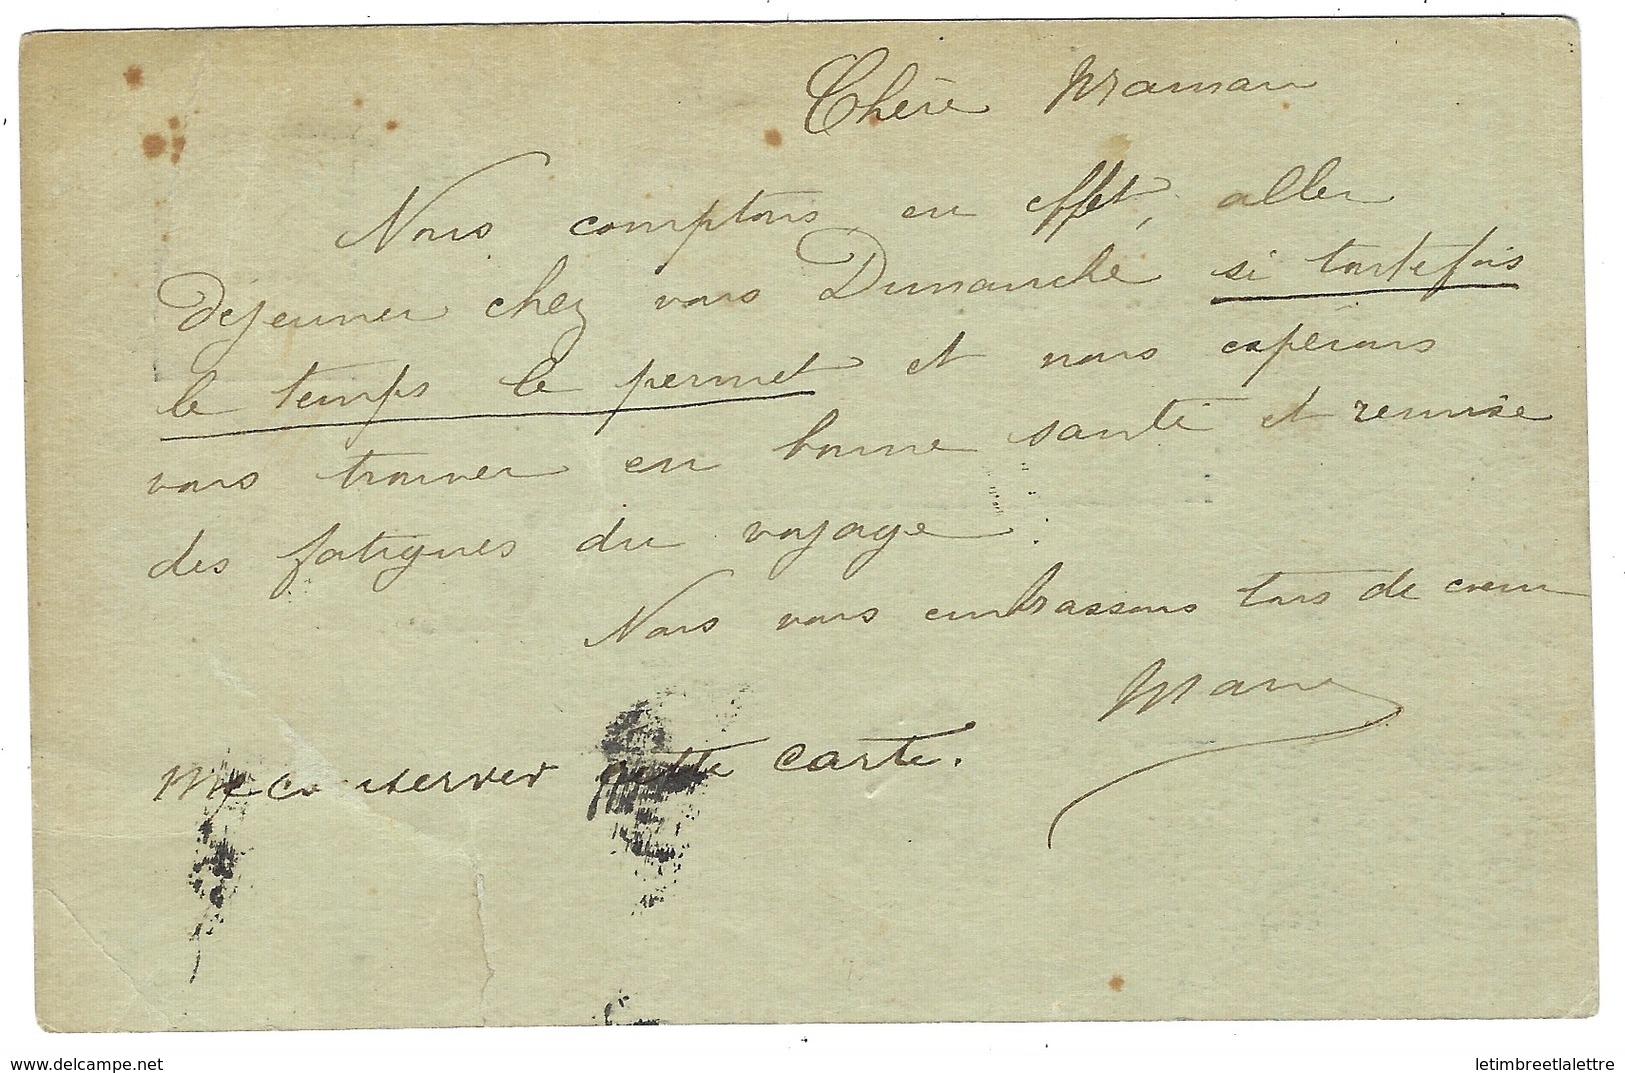 Chère Maman
Nous comptons en effet, aller
Déjeuner chez vous Dimanche si toutefois
le temps le permet et nous espérons
vous trouver en bonne santé et remise
des fatigues du voyage.
Nous vous embrassons tous de cœur
Marie
me conserver cette carte.
www.delcampe.net
letimbreetlalettre